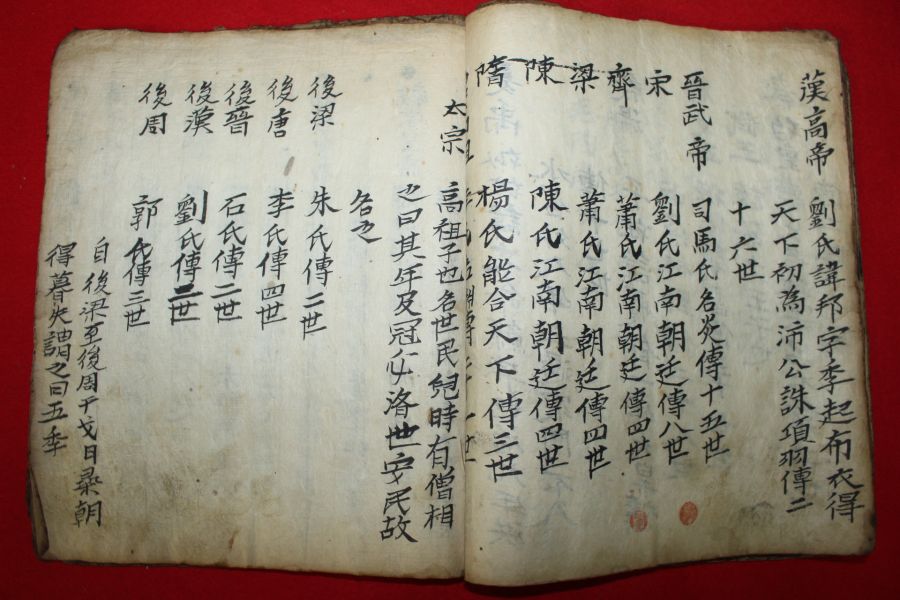 漢高帝 劉氏諱邦字季起布衣得
天下初為沛公誅項羽傳二
十六世
晉武帝 司馬氏名炎傳十五世
宋 劉氏江南朝廷傳八世
齊 蕭氏江南朝廷傳四世
梁 蕭氏江南朝廷傳四世
陳 陳氏江南朝廷傳四世
隋 楊氏能合天下傳三世
太宗 高祖子也名世民兒時有僧相
之曰其年及冠必濟世安民故
名之
後梁 朱氏傳二世
後唐 李氏傳四世
後晉 石氏傳二世
後漢 劉氏傳二世
後周 郭氏傳三世
自後梁至後周干戈日桑朝
得暮失謂之曰五季